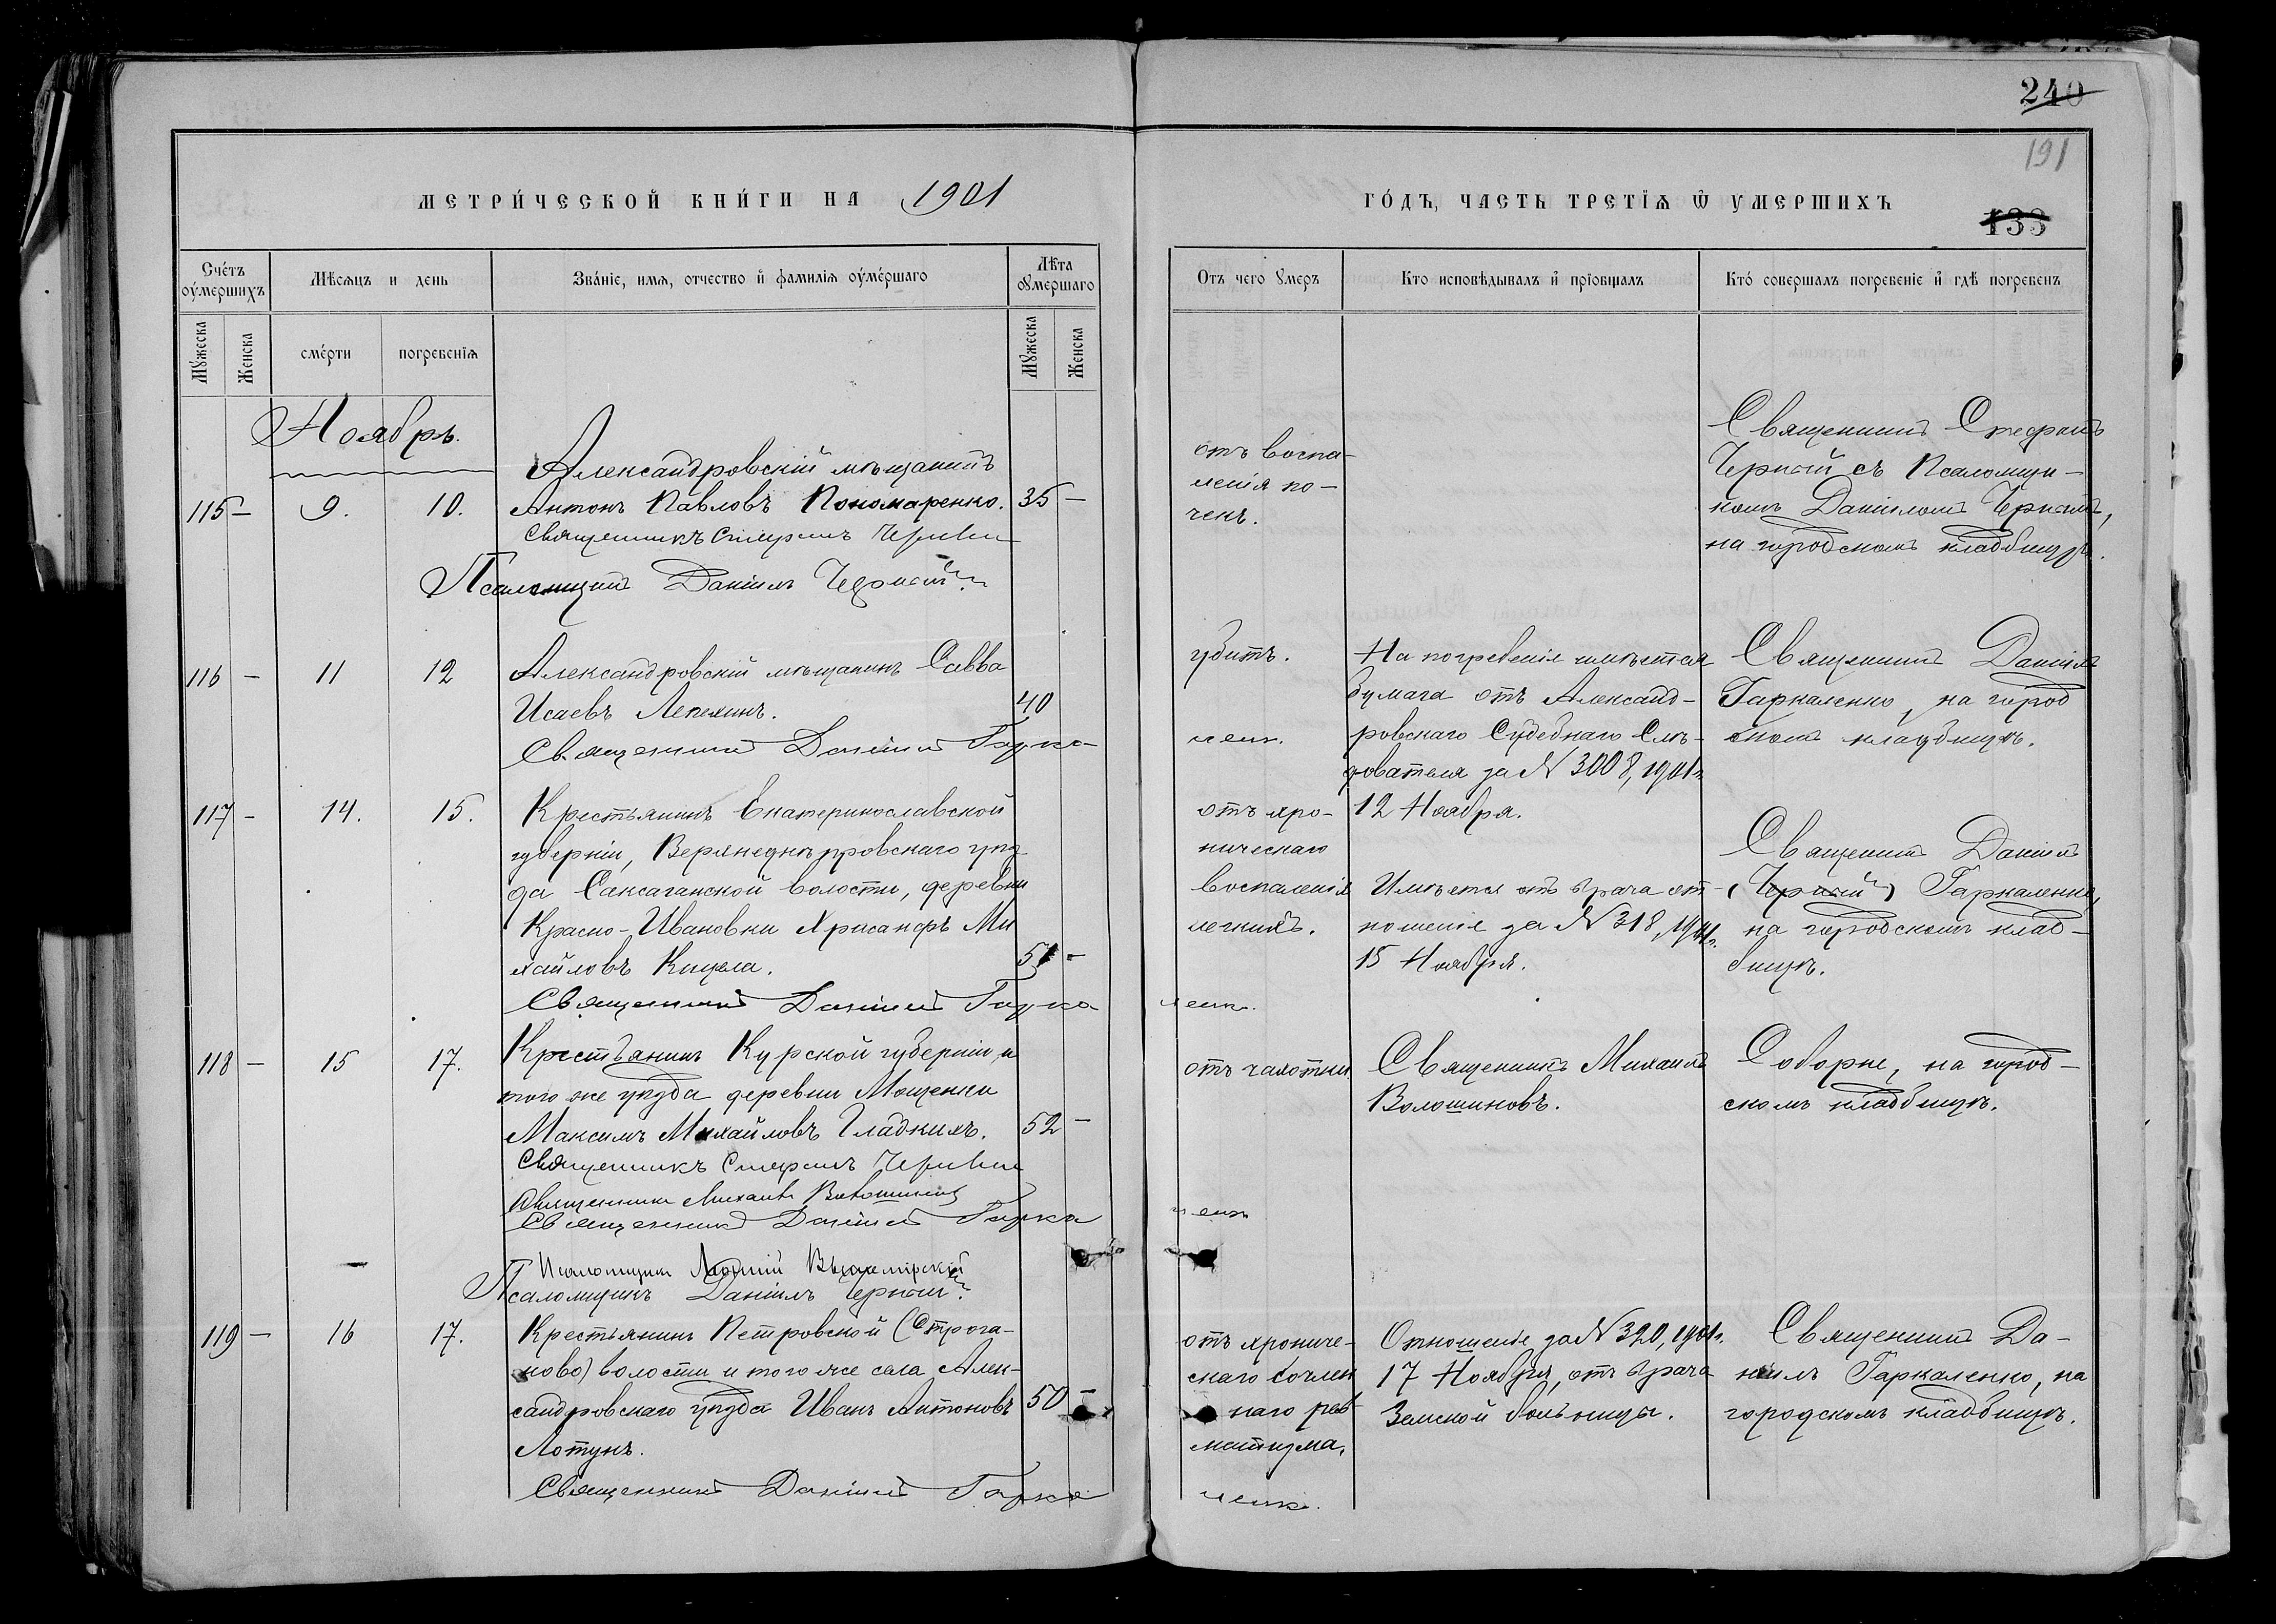 240
191
133
МЕТРИ́ЧЕСКОЙ КНИ́ГИ НА 1901
ГО́ДЪ, ЧАСТЬ ТРЕТІЯ Ѿ УМЕРШИХЪ
Сче́тъ оу҆ме́ршихъ
Мѣсяцъ и день
Зва́ніе, имя, отчество и҆ фамилія оу҆ме́ршаго
Лѣта оумершаго
Мꙋжеска
Женска
сме́рти
погребенія
Мꙋжеска
Женска
Отъ чего ꙋмеръ
Кто исповѣдывалъ и҆ прїобщалъ
Кто́ совершалъ погребеніе и҆ гдѣ погребенъ
Ноябрь.
115 – 9. 10.
Александровскій мѣщанинъ
Антонъ Павловъ Пономаренко. 35 –
Священникъ Стефанъ Черный
Псаломщикъ Даніилъ Черный
отъ воспа-
ленія по-
чекъ.
Священникъ Стефанъ
Черный съ Псаломщи-
комъ Даніиломъ Чернымъ,
на городскомъ кладбищѣ.
116 – 11 12
Александровскій мѣщанинъ Савва
Исаевъ Лепехинъ. 40
Священникъ Даніилъ Гарка
ленк.
убитъ.
На погребеніе имѣется
бумага отъ Александ-
ровскаго Судебнаго Слѣ-
дователя за № 3008, 1901 г.
12 Ноября.
Священникъ Даніилъ
Гаркаленко, на город
скомъ кладбищѣ.
117 – 14. 15.
Крестьянинъ Екатеринославской
губерніи, Верхнеднѣпровскаго уѣз
да Саксаганской волости, деревни
Красно-Ивановки Хрисанфъ Ми
хайловъ Кицела. 51 –
Священникъ Даніилъ Гарка
ленк.
отъ хро-
ническаго
воспаленія
легкихъ.
Имѣется отъ врача от-
ношеніе за № 318, 1901 г.
15 Ноября.
Священникъ Даніилъ
(Черный) Гаркаленко,
на городскомъ клад-
бищѣ.
118 – 15 17.
Крестьянинъ Курской губерніи, и
того же уѣзда деревни Мощенки
Максимъ Михайловъ Гладкихъ. 52 –
Священникъ Стефанъ Черный
Священникъ Михаилъ Волошиновъ
Священникъ Даніилъ Гарка
ленк
Псаломщикъ
Псаломщикъ Даніилъ Черный
отъ чахотки.
Священникъ Михаилъ
Волошиновъ.
Соборне, на город-
скомъ кладбищѣ.
119 – 16 17.
Крестьянинъ Петровской (Строга-
ново) волости и того же села Алек-
сандровскаго уѣзда Иванъ Антоновъ 50 –
Лотунъ.
Священникъ Даніилъ Гарка
ленк.
отъ хрониче-
скаго сочлен
наго рев-
матизма.
Отношеніе за № 320, 1901 г.
17 Ноября, отъ врача
Земской больницы.
Священникъ Да-
ніилъ Гаркаленко, на
городскомъ кладбищѣ.